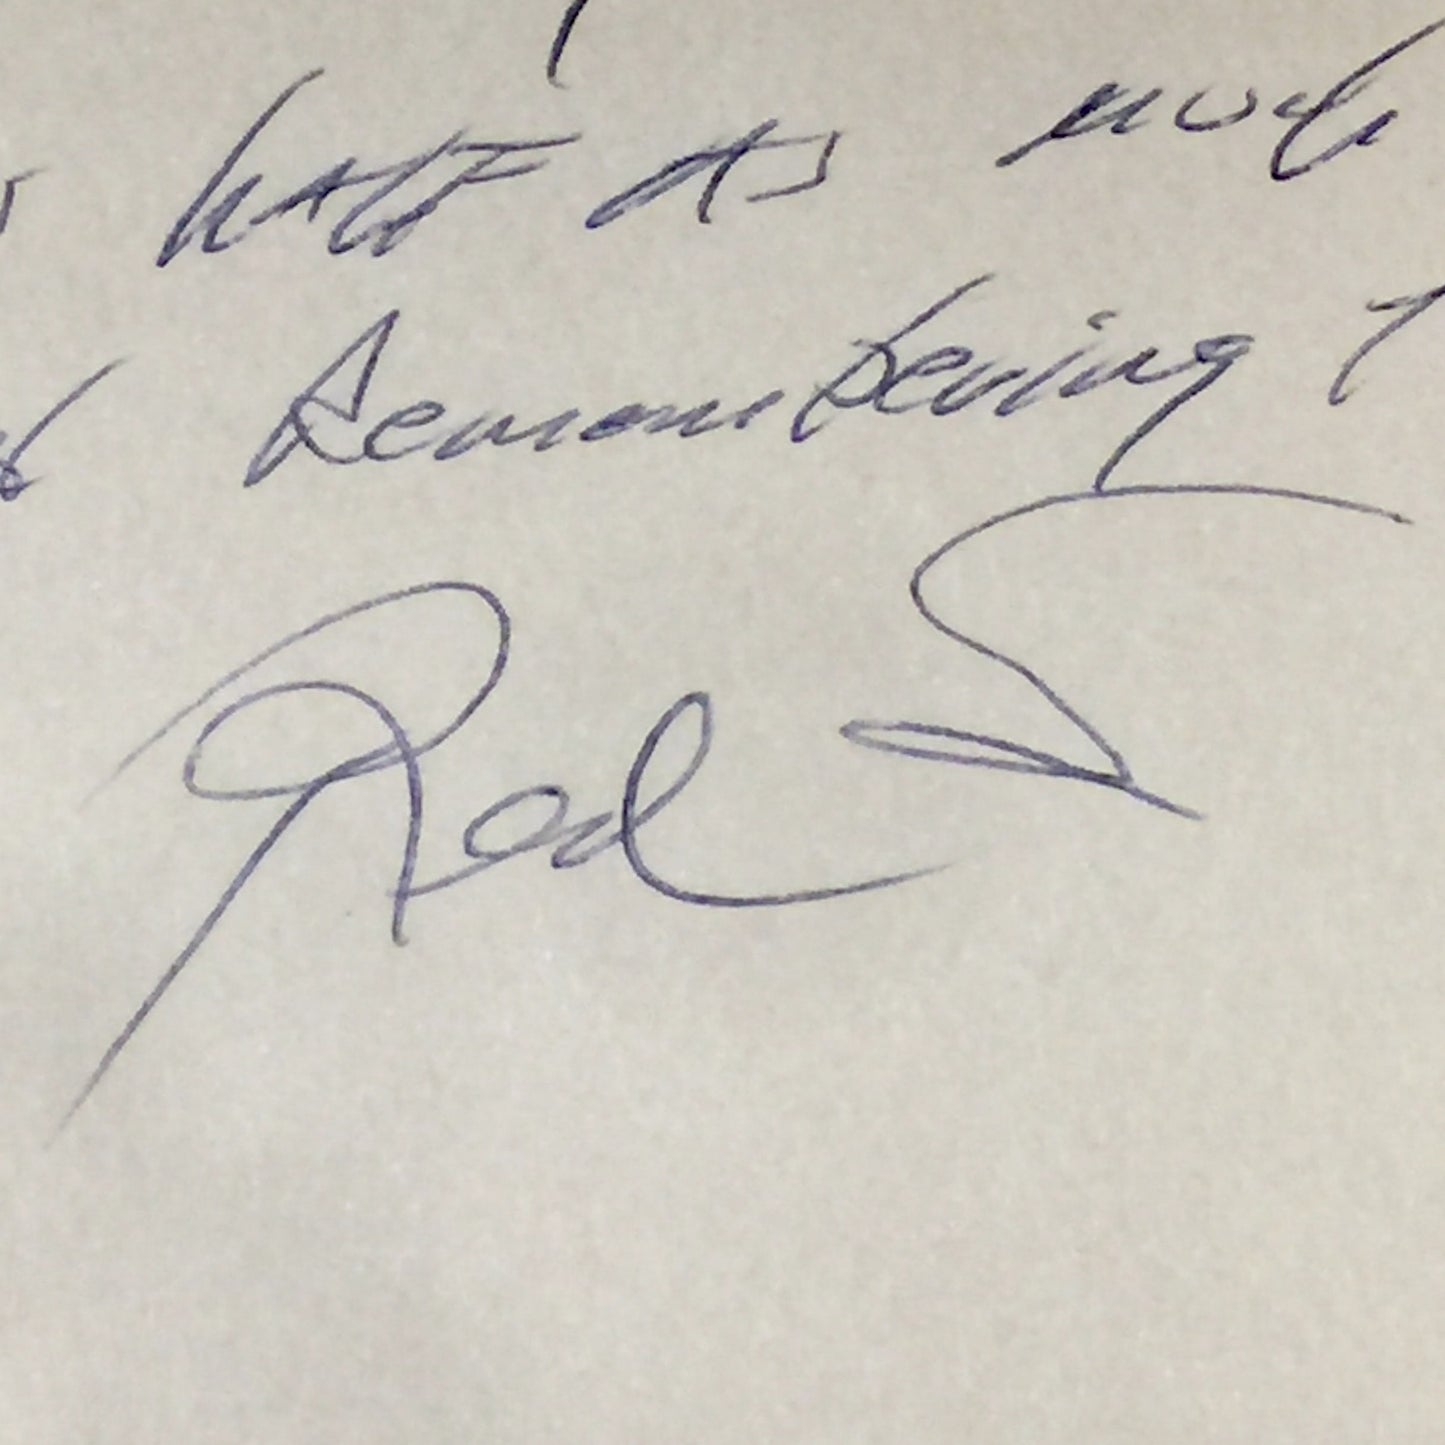 half as much
Remembering
Rod S